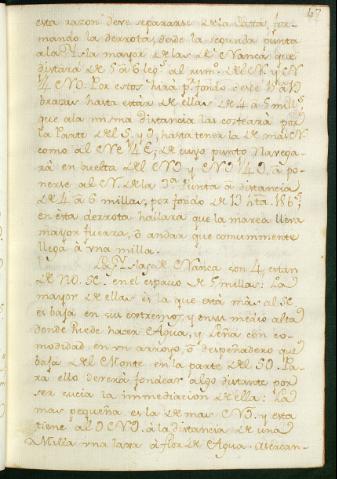 67
esta razon deve repararse de la Costa, for-
mando la derrota desde la segunda punta
a la Ysla mayor de las de Nanca, que
distará de 5 a 6 leg.s al rum.o del N y N
1/4 NO. Por estos hirá p.r fondo desde 13 a 19
brazas hasta estár de ellas de 4 a 5 mill.s
que a la misma distancia las costeará por
la Parte del S. y O, hasta tener la de mas N
como al NE 1/4 E; de cuyo punto Navega-
rá en buelta del NO y NO 1/4 O, á po-
nerse al N. de la 3.a Punta á distancia
de 4 a 6 millas, por fondo de 13 h.ta 18 b.s
en esta derrota hallará que la marea lleva
mayor fuerza, ó andar que comummente
llega á una milla.
Las Yslas de Nanca son 4, están
de NO. SE. en el espacio de 5 millas: La
mayor de ellas es la que está más al SE
es baja en sus extremos, y en su medio alta
donde Puede hacer Agua, y Leña con co-
modidad en un arroyo, ó despeñadero que
baja del Monte en la parte del SO. Pa-
rá ello deverá fondear algo distante por
ser sucia la inmediacion de ella: La
mas pequeña es la de mas NO. y esta
tiene al ONO. á la distancia de una
Milla una laxa á flor de Agua.